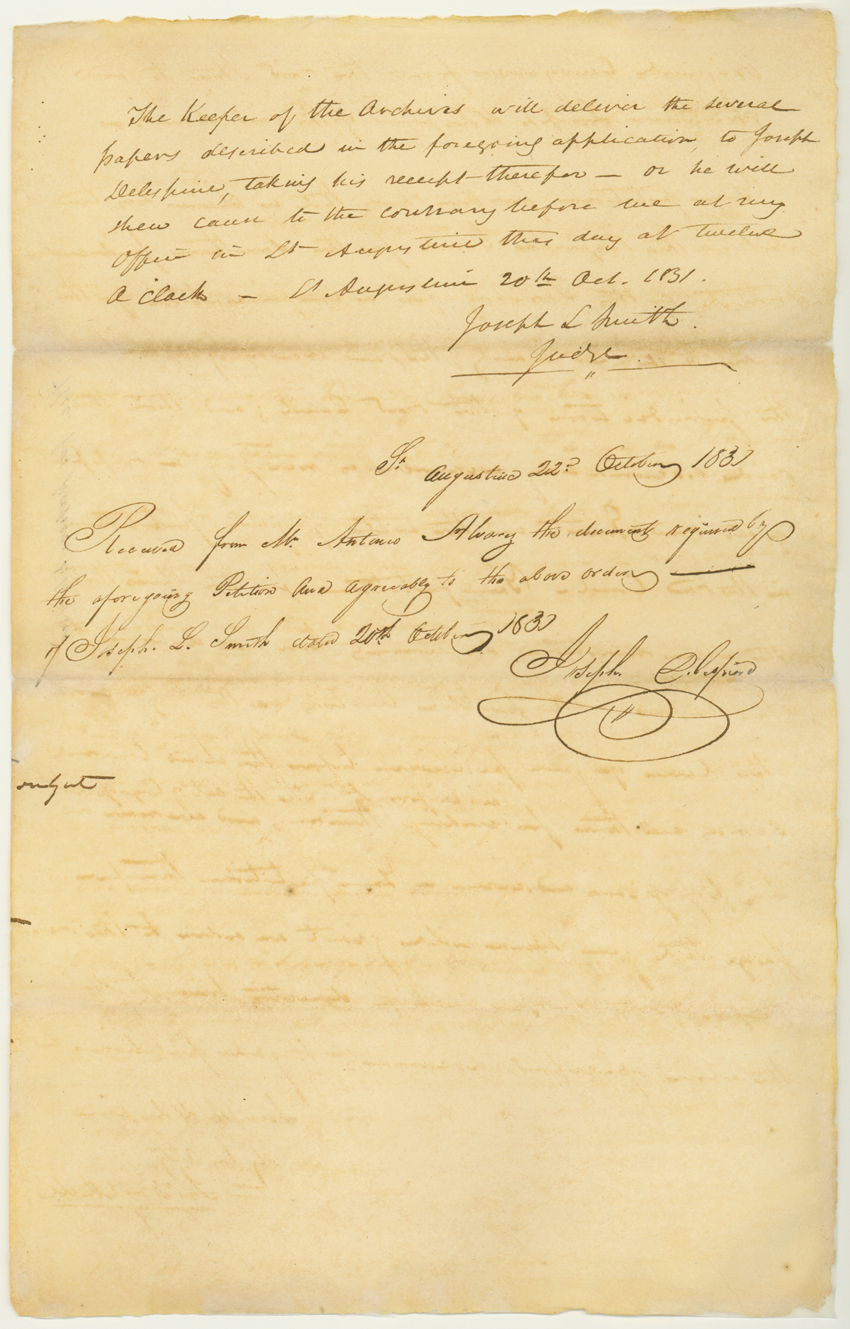 The Keeper of the Archives will deliver the several
papers described in the foregoing application, to Joseph
Delespine, taking his receipt therefor — or he will
shew cause to the contrary before me at my
Office in St Augustine this day at twelve
O'clock — St Augustine 20th Oct. 1831.
Joseph L Smith.
Judge.
St Augustine 22d October 1831
Received from Mr. Antonio Alvarez the documents required by
the aforegoing Petition and agreeably to the above order
of Joseph. L. Smith dated 20th October 1831
Joseph Delespine